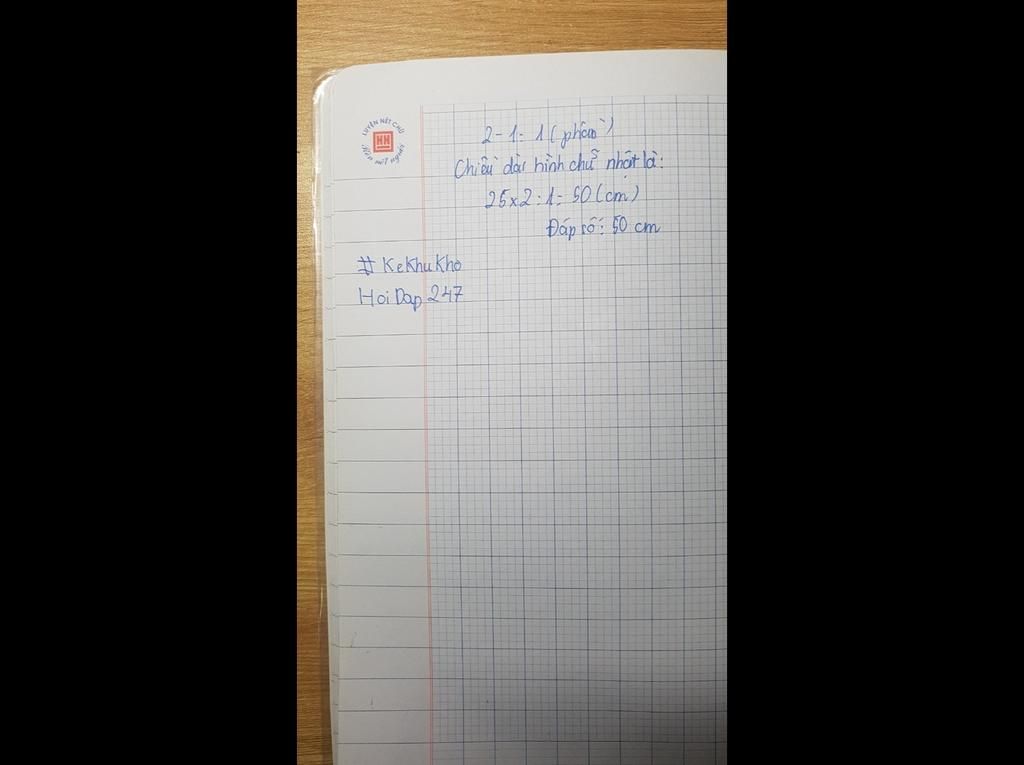 LUYỆN NÉT CHỮ
HH
Rèn nết người
2 - 1 = 1 (phần)
Chiều dài hình chữ nhật là:
25 x 2 : 1 = 50 (cm)
Đáp số: 50 cm
# KeKhuKho
HoiDap 247